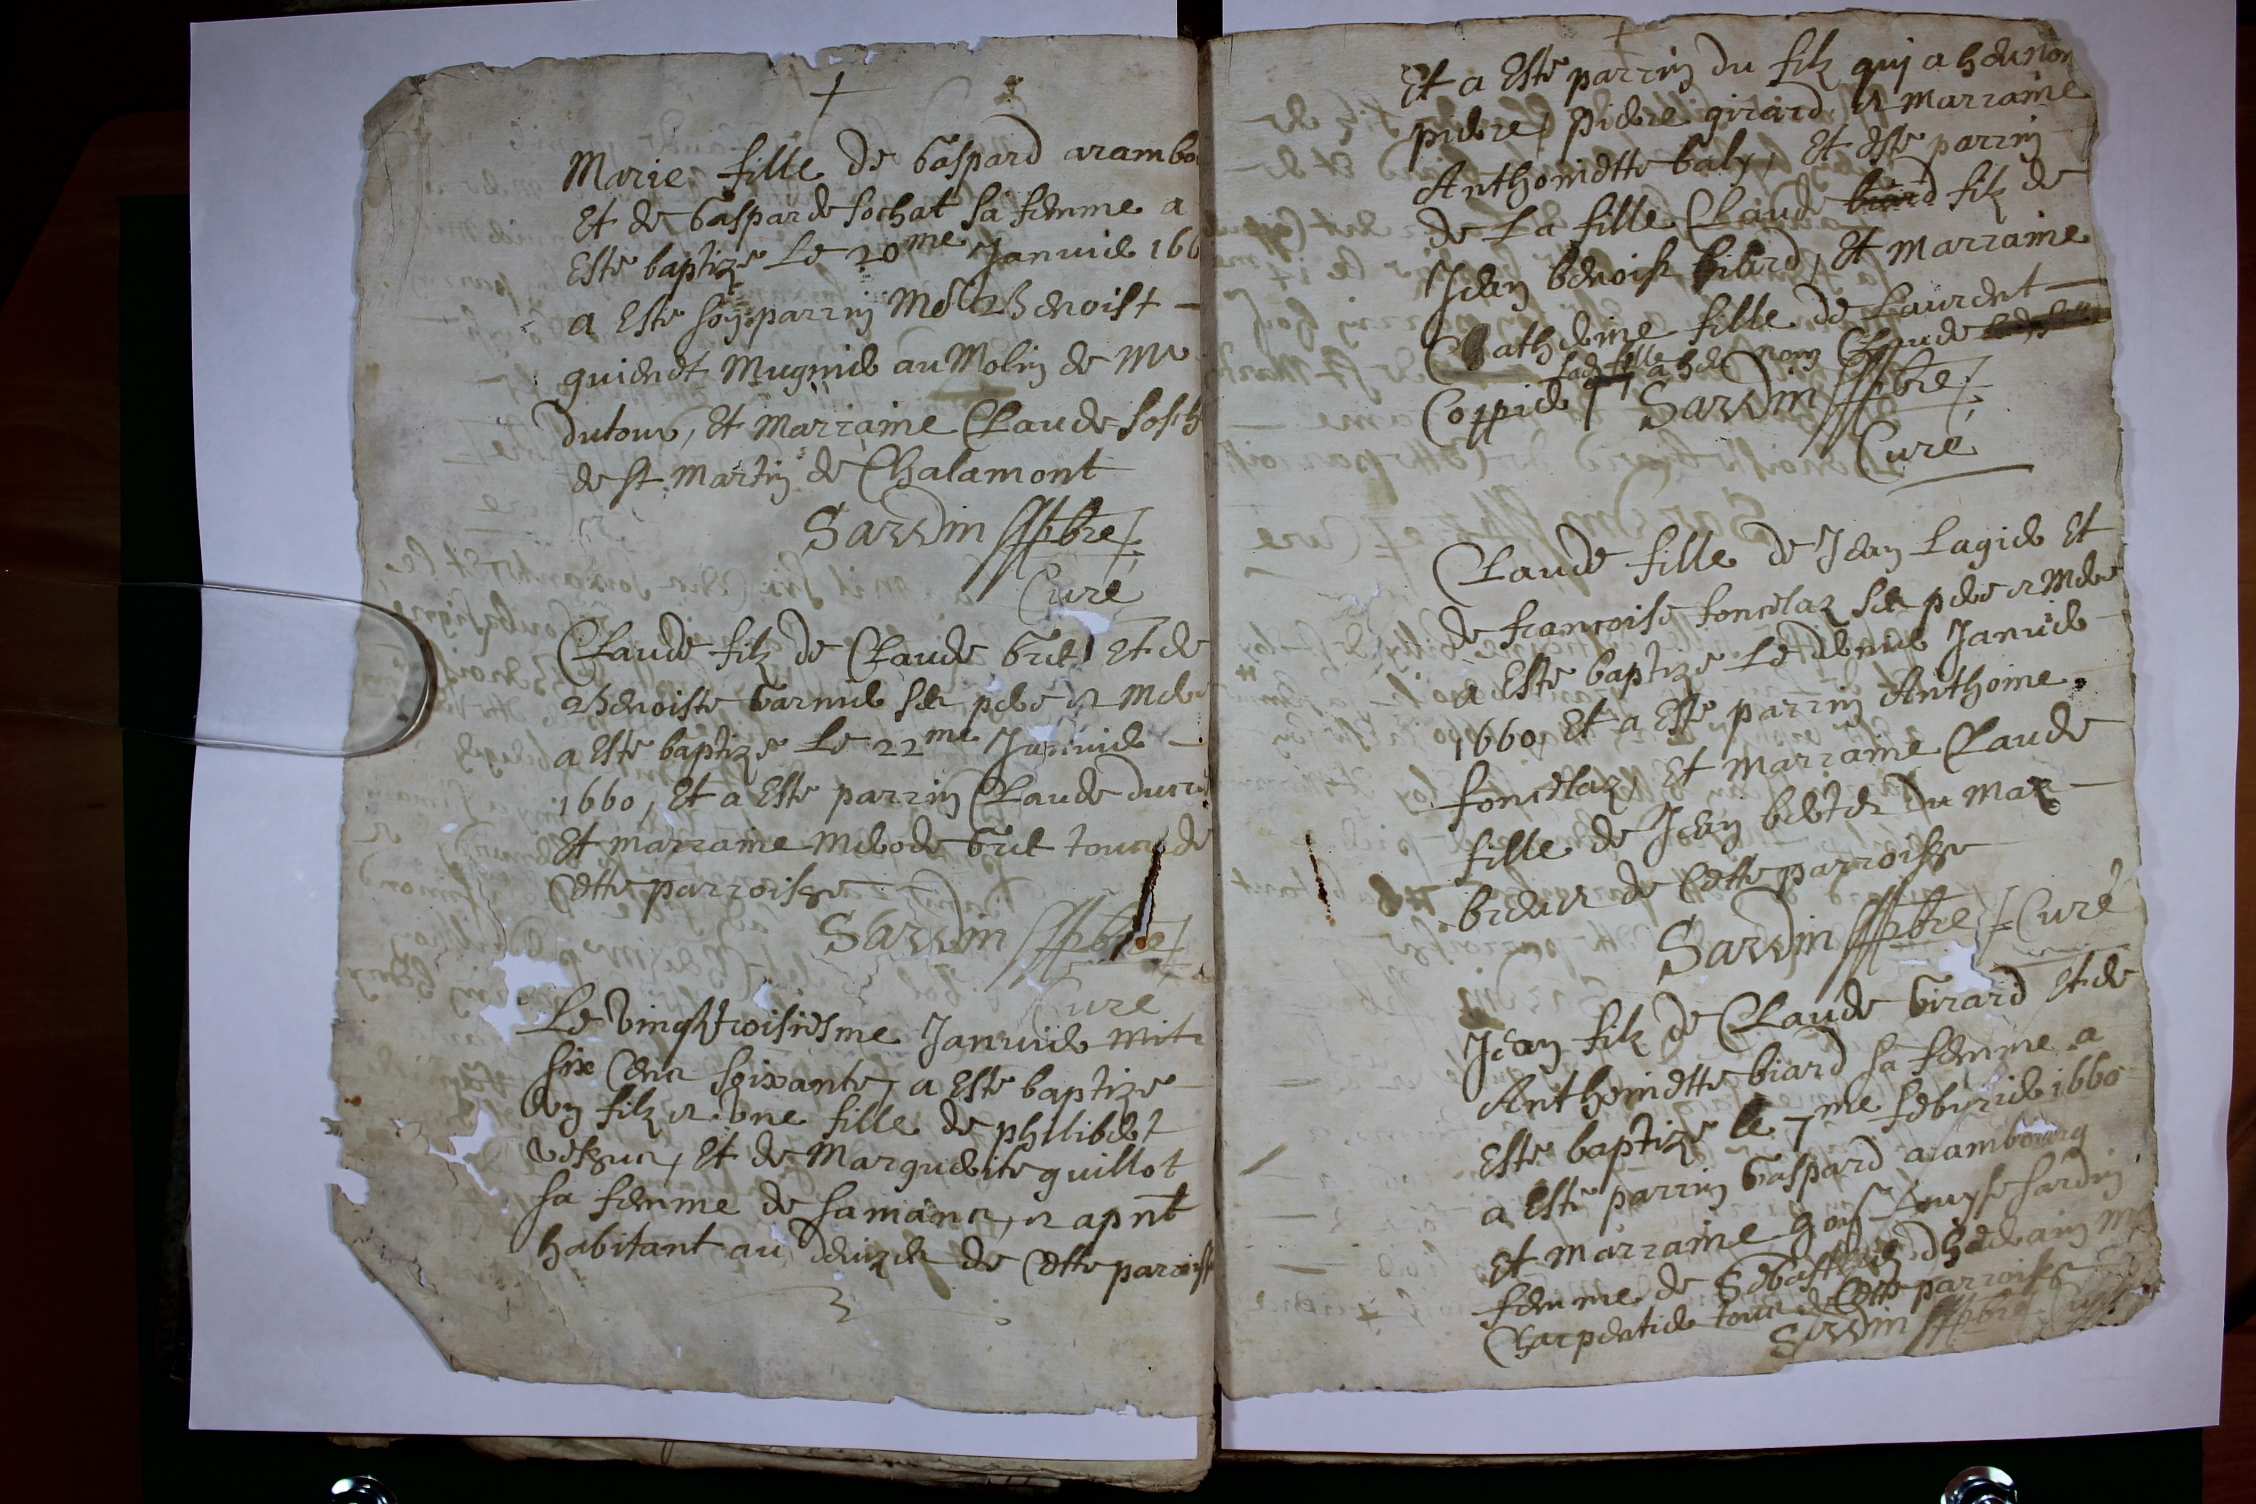 Marie fille de Gaspard arambo
Et de Gasparde sochat sa femme a
Este baptize Le 20me Janvier 166
a Este son parrin Benoist
quident Mugnier au Molin de
dutour, Et marraine Claude soch
de st Martin de Chalamont
Sardin pbre
Curé
Claude filz de Claude Gret Et de
Benoiste Garnier ses pere et mere
a Este baptize Le 22me Janvier
1660, Et a Este parrin Claude
Et marraine Gret tous de
Cette parroisse
Sardin pbre
Curé
Le vingt troisiesme Janvier mil
six Cens soixante, a Este baptize
un filz et une fille de philibert
Et de Marguerite guillot
sa femme de et apnt
habitant au de Cette paroiss
Et a Este parrin du filz qui a heu nom
piere, piere girard et marraine
Anthoinette Galy, Et Este parrin
de La fille Claude biard filz de
Jean benoist biard, Et marraine
Chatherine fille de Laurent
lad fille a heu nom Claude
Coppier Sardin pbre
Curé
Claude fille de Jean Lagier Et
de françoise foncelaz ses pere et mere
a Este baptize Le dernier Janvier
1660, Et a Este parrin Anthoine
foncelaz, Et marraine Claude
fille de Jean du Maz
de Cette parroisse
Sardin pbre Curé
Jean filz de Claude Girard Et de
Anthoinette biard sa femme a
Este baptize le 7me febvrier 1660
a Este parrin Gaspard arambourg
Et marraine sardin
femme de Sebastien
Charpentier tous de Cette parroisse
Sardin pbre Curé